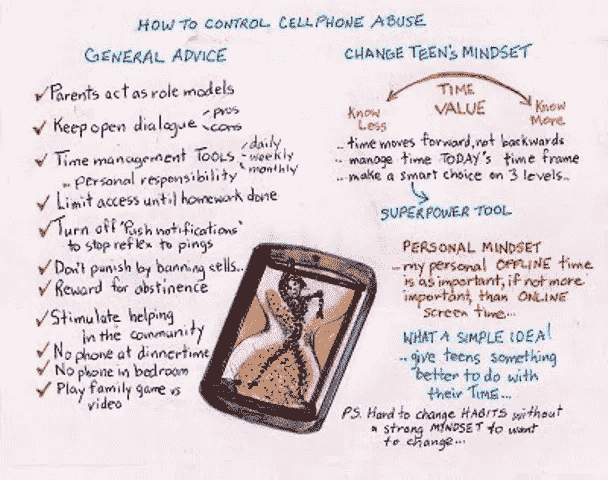 HOW TO CONTROL CELLPHONE ABUSE
GENERAL ADVICE
✓ Parents act as role models
✓ Keep open dialogue pros cons
✓ Time management TOOLS daily weekly monthly
.. personal responsibility
✓ Limit access until homework done
✓ Turn off "Push notifications"
to stop reflex to pings
✓ Don't punish by banning cells..
✓ Reward for abstinence
✓ Stimulate helping
in the community
✓ No phone at dinnertime
✓ No phone in bedroom
✓ Play family game vs
video
CHANGE TEEN'S MINDSET
TIME
VALUE
Know
Less
Know
More
.. time moves forward, not backwards
.. manage time TODAY'S time frame
.. make a smart choice on 3 levels..
SUPERPOWER TOOL
PERSONAL MINDSET
.. my personal OFFLINE time
is as important, if not more
important, than ONLINE
screen time...
WHAT A SIMPLE IDEA!
.. give teens something
better to do with
their TIME...
P.S. Hard to change HABITS without
a strong MINDSET to want
to change...